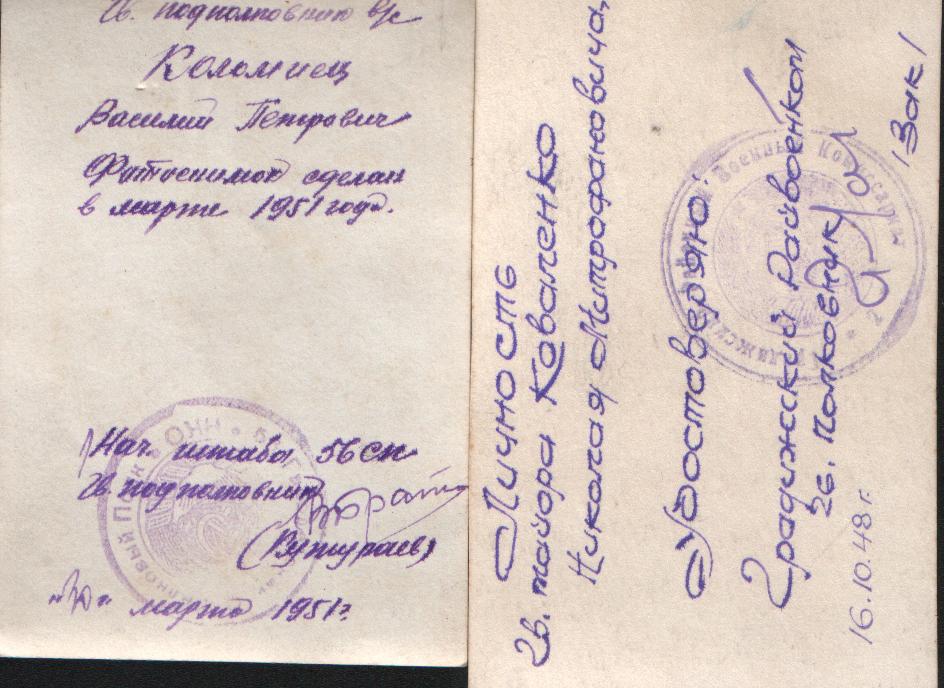 Гв. подполковник в/с
Коломиец
Василий Петрович
Фотоснимок сделан
в марте 1951 года.
Нач. штаба 56 ск
Гв. подполковник
марта 1951 г.
Личность
гв. майора Коваленко
Николая Митрофановича,
Удостоверяю:
Градижский Райвоенком
гв. Полковник
16.10.48 г.